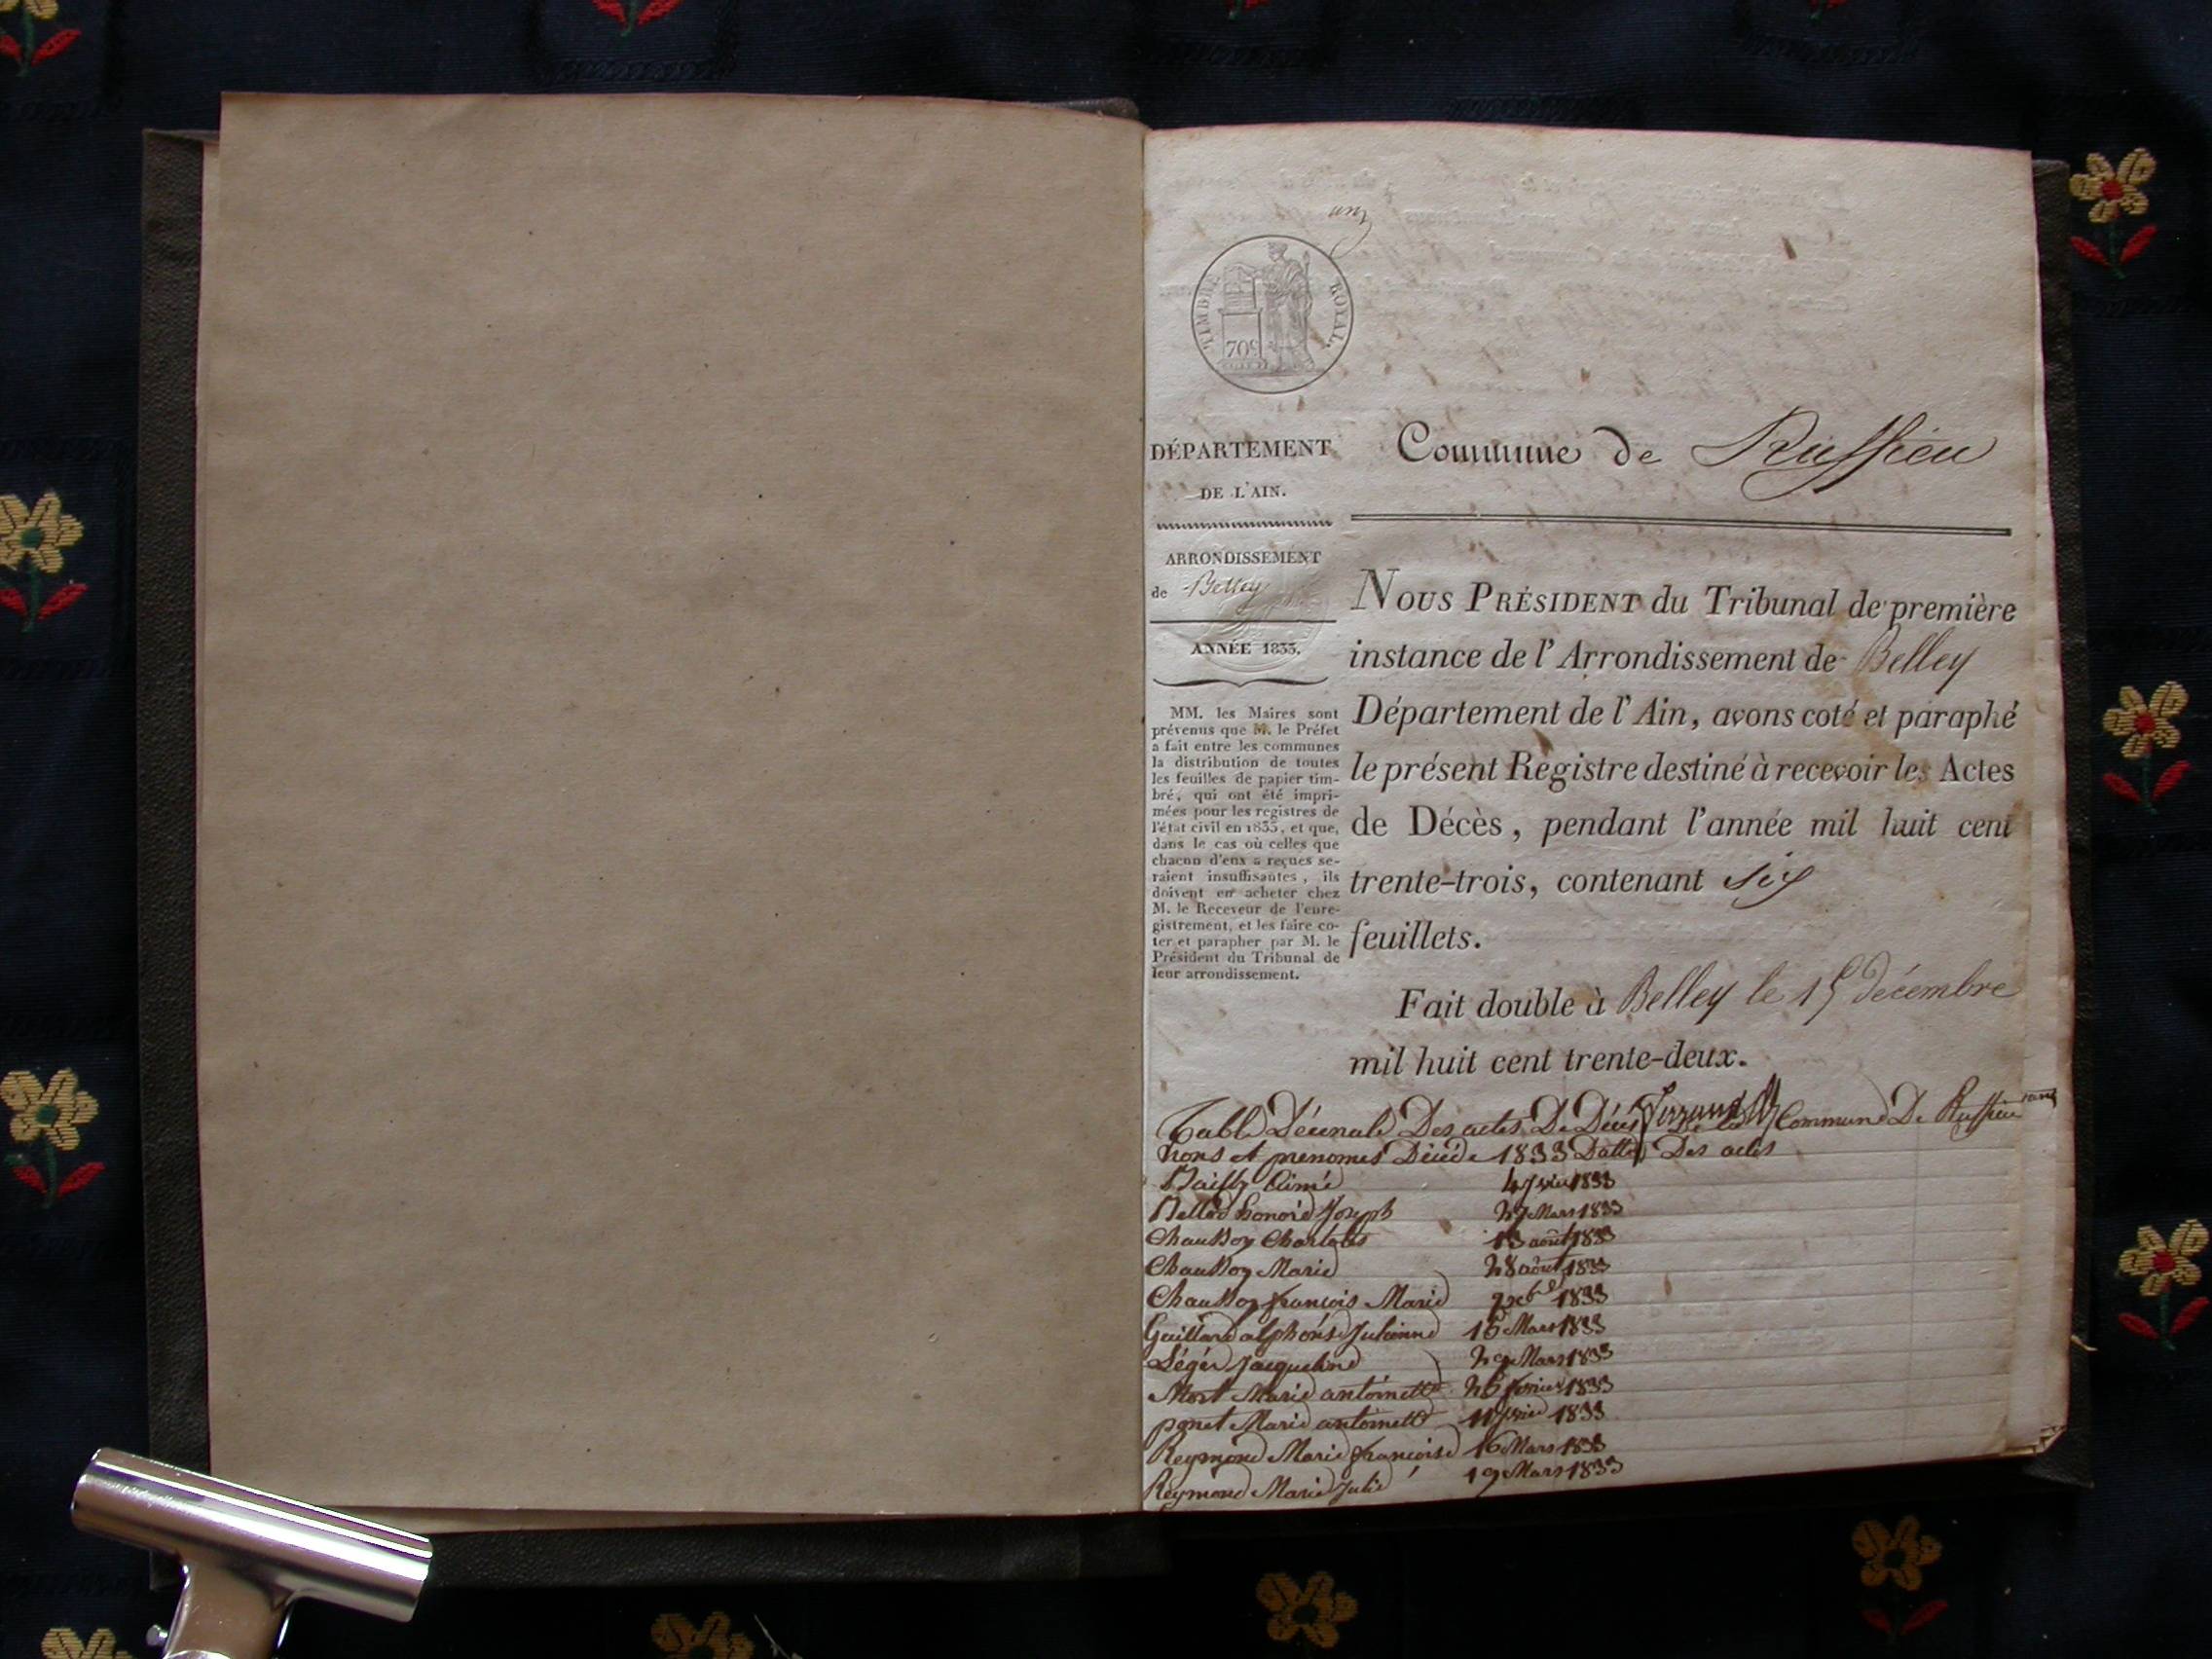 un
TIMBRE ROYAL.
70c
DÉPARTEMENT
DE L'AIN.
ARRONDISSEMENT
de Belley
ANNÉE 1833.
MM. les Maires sont
prévenus que M. le Préfet
a fait entre les communes
la distribution de toutes
les feuilles de papier tim-
bré, qui ont été impri-
mées pour les registres de
l'état civil en 1833, et que,
dans le cas où celles que
chacun d'eux a reçues se-
raient insuffisantes, ils
doivent en acheter chez
M. le Receveur de l'enre-
gistrement, et les faire co-
ter et parapher par M. le
Président du Tribunal de
leur arrondissement.
Commune de Ruffieu
NOUS PRÉSIDENT du Tribunal de première
instance de l'Arrondissement de Belley
Département de l'Ain, avons coté et paraphé
le présent Registre destiné à recevoir les Actes
de Décès, pendant l'année mil huit cent
trente-trois, contenant six
feuillets.
Fait double à Belley le 15 décembre
mil huit cent trente-deux.
Table Décenale Des actes De Décès De la Commune De Ruffieu
noms et prenomes Décédé 1833 Datte Des actes
Bailly Aimé 1833
Honoré Joseph 27 Mars 1833
13 août 1833
Marie 28 août 1833
françois Marie 1833
Gaillard alphonse Julienne 16 Mars 1833
Léger Jacqueline 29 Mars 1833
Mort Marie antoinette 26 fevrier 1833
ponet Marie antoinette 1833
Reymond Marie françoise 16 Mars 1833
Reymond Marie Julie 19 Mars 1833